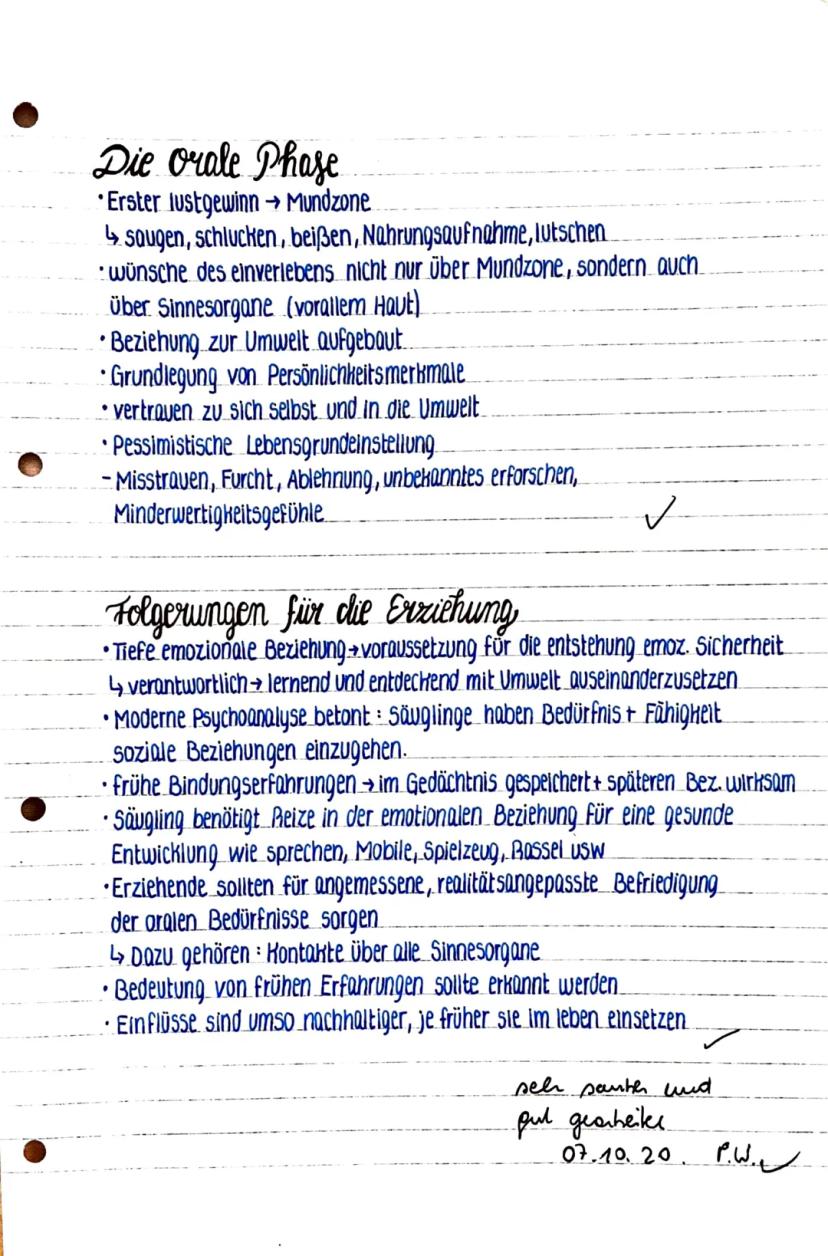 Die orale Phase
• Erster lustgewinn → Mundzone
↳ saugen, schlucken, beißen, Nahrungsaufnahme, lutschen
• wünsche des einverlebens nicht nur über Mundzone, sondern auch
über Sinnesorgane (vorallem Haut)
• Beziehung zur Umwelt aufgebaut
• Grundlegung von Persönlichkeitsmerkmale
• vertrauen zu sich selbst und in die Umwelt
• Pessimistische Lebensgrundeinstellung
- Misstrauen, Furcht, Ablehnung, unbekanntes erforschen,
Minderwertigkeitsgefühle
Folgerungen für die Erziehung
• Tiefe emozionale Beziehung → voraussetzung für die entstehung emoz. Sicherheit
↳ verantwortlich → lernend und entdeckend mit Umwelt auseinanderzusetzen
• Moderne Psychoanalyse betont: Säuglinge haben Bedürfnis + Fähigkeit
soziale Beziehungen einzugehen.
• frühe Bindungserfahrungen → im Gedächtnis gespeichert + späteren Bez. wirksam
• Säugling benötigt Reize in der emotionalen Beziehung für eine gesunde
Entwicklung wie sprechen, Mobile, Spielzeug, Rassel usw
• Erziehende sollten für angemessene, realitätsangepasste Befriedigung
der oralen Bedürfnisse sorgen
↳ Dazu gehören: Kontakte über alle Sinnesorgane
• Bedeutung von frühen Erfahrungen sollte erkannt werden
• Einflüsse sind umso nachhaltiger, je früher sie im leben einsetzen
sehr sauber und
gut
07.10.20. P.W.